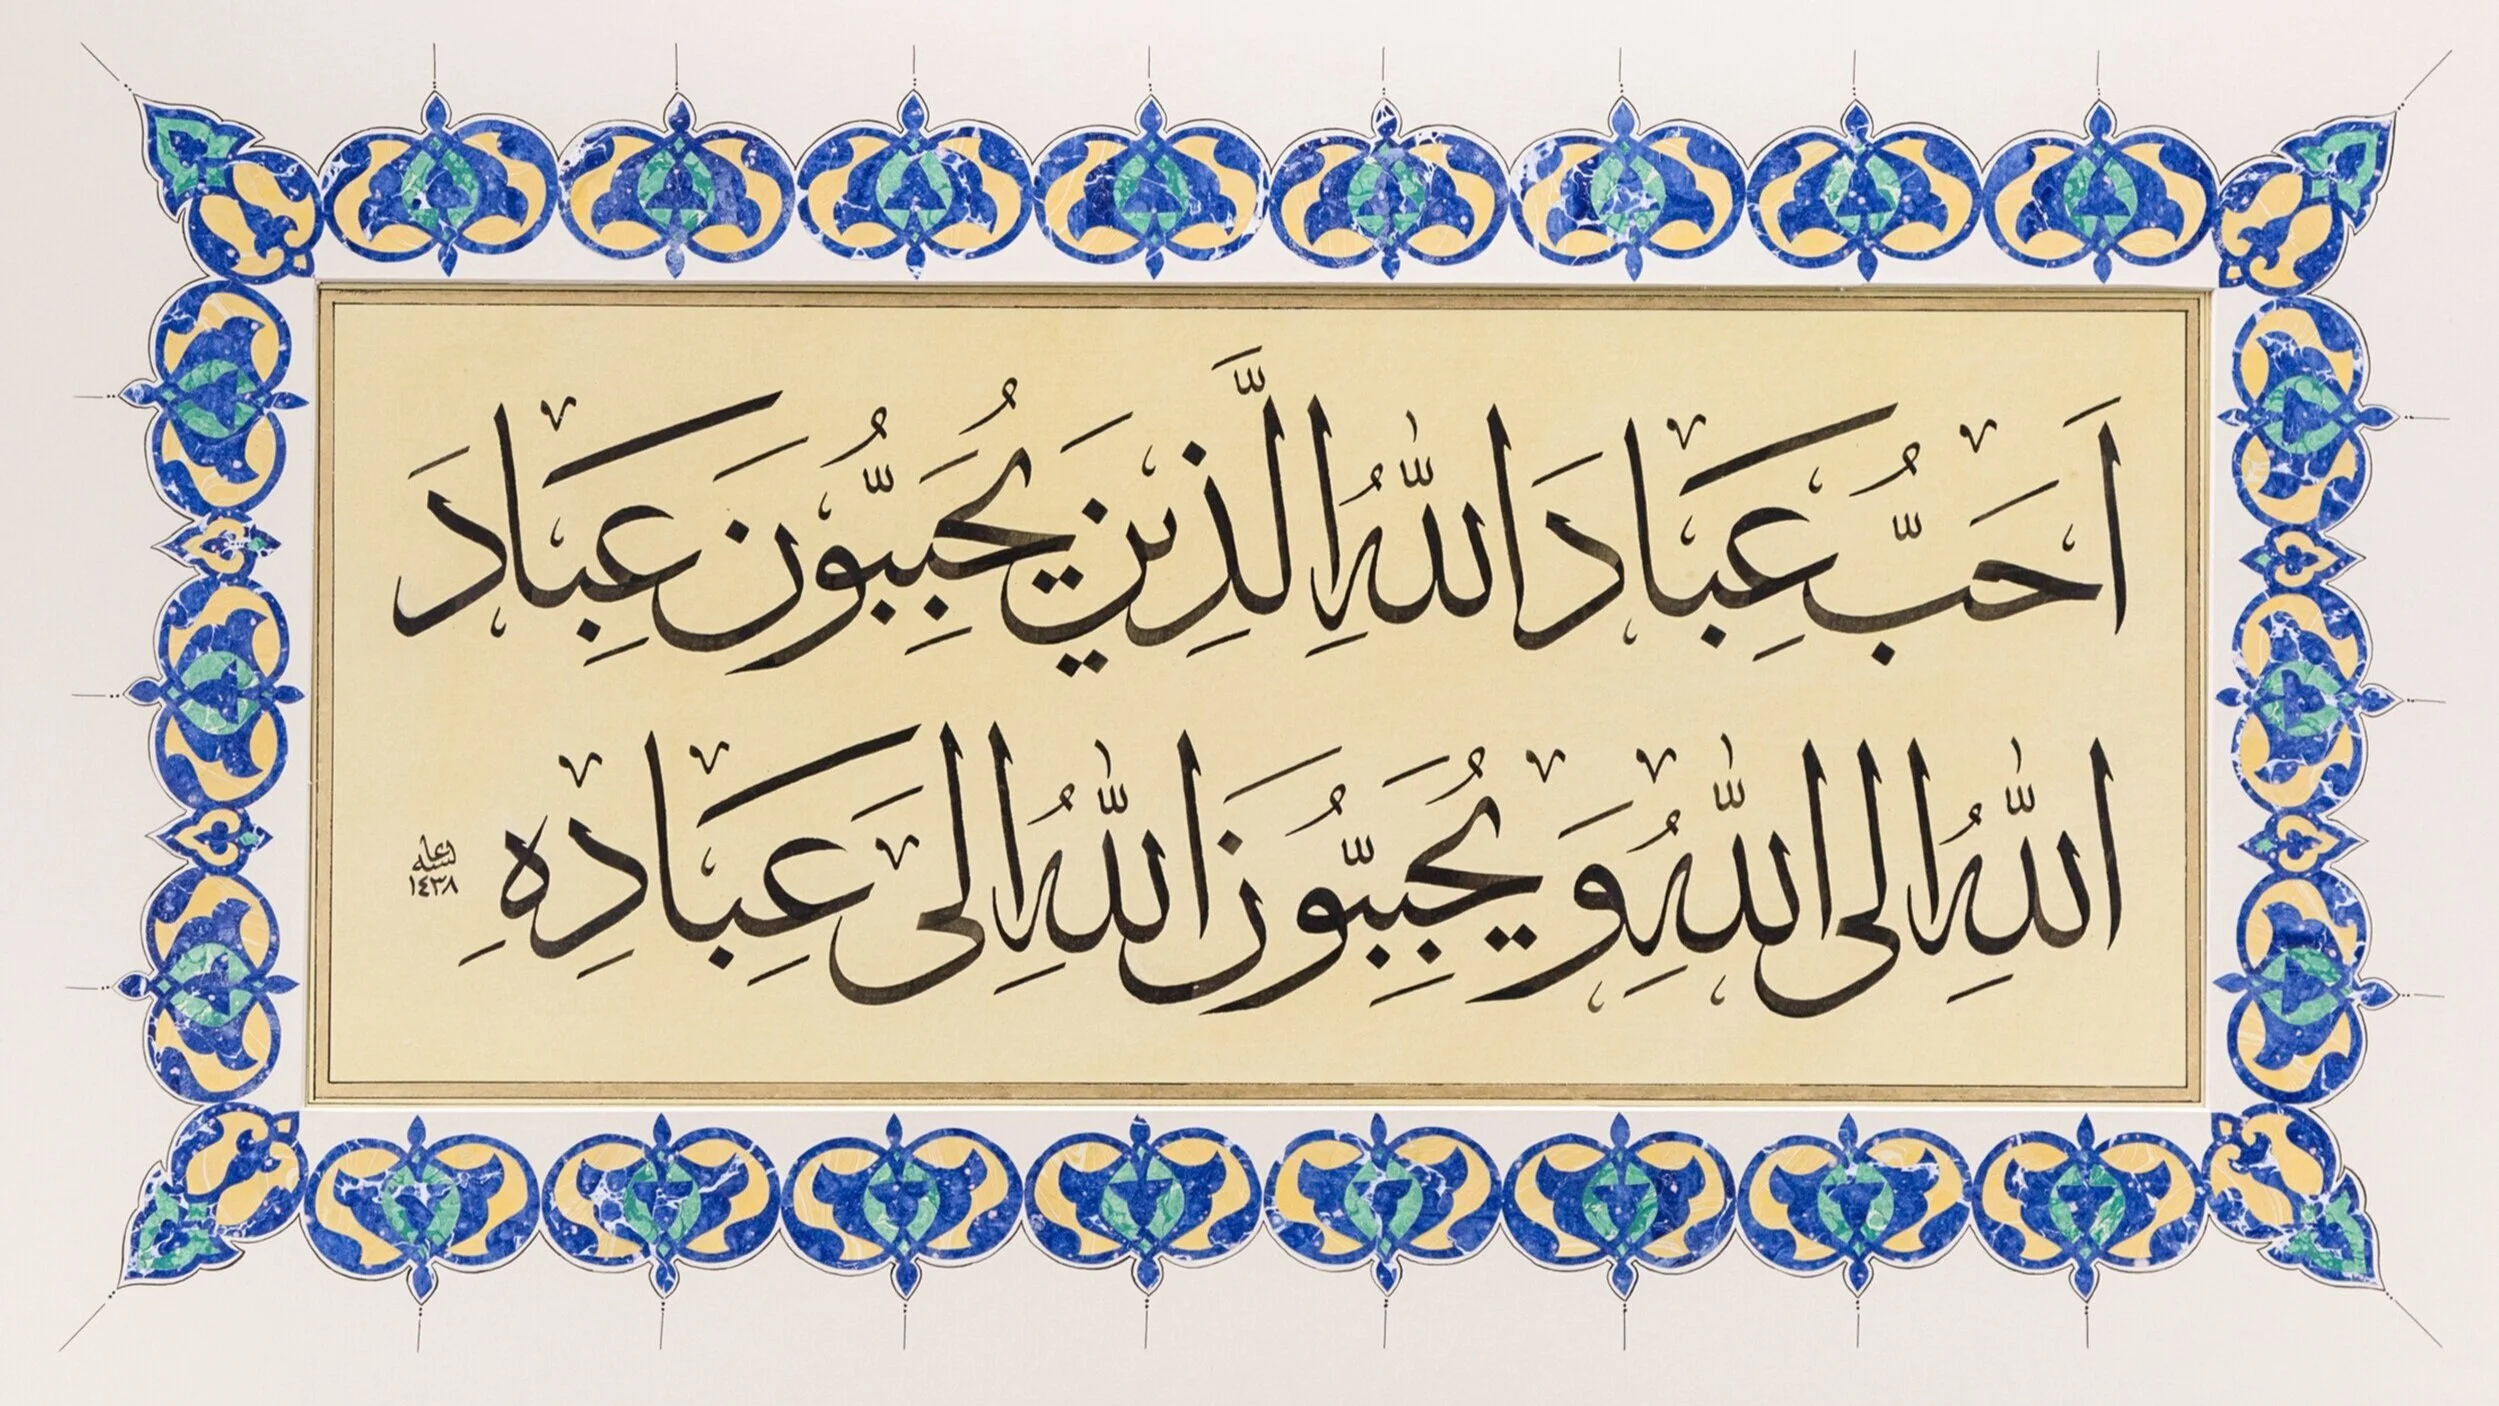 اَحَبُّ عِبَادَ اللّٰهِ الَّذِينَ يُحَبِّبُونَ عِبَادَ
اللّٰهِ اِلى اللّٰهِ وَيُحَبِّبُونَ اللّٰهَ اِلى عِبَادِهِ
١٤٣٨